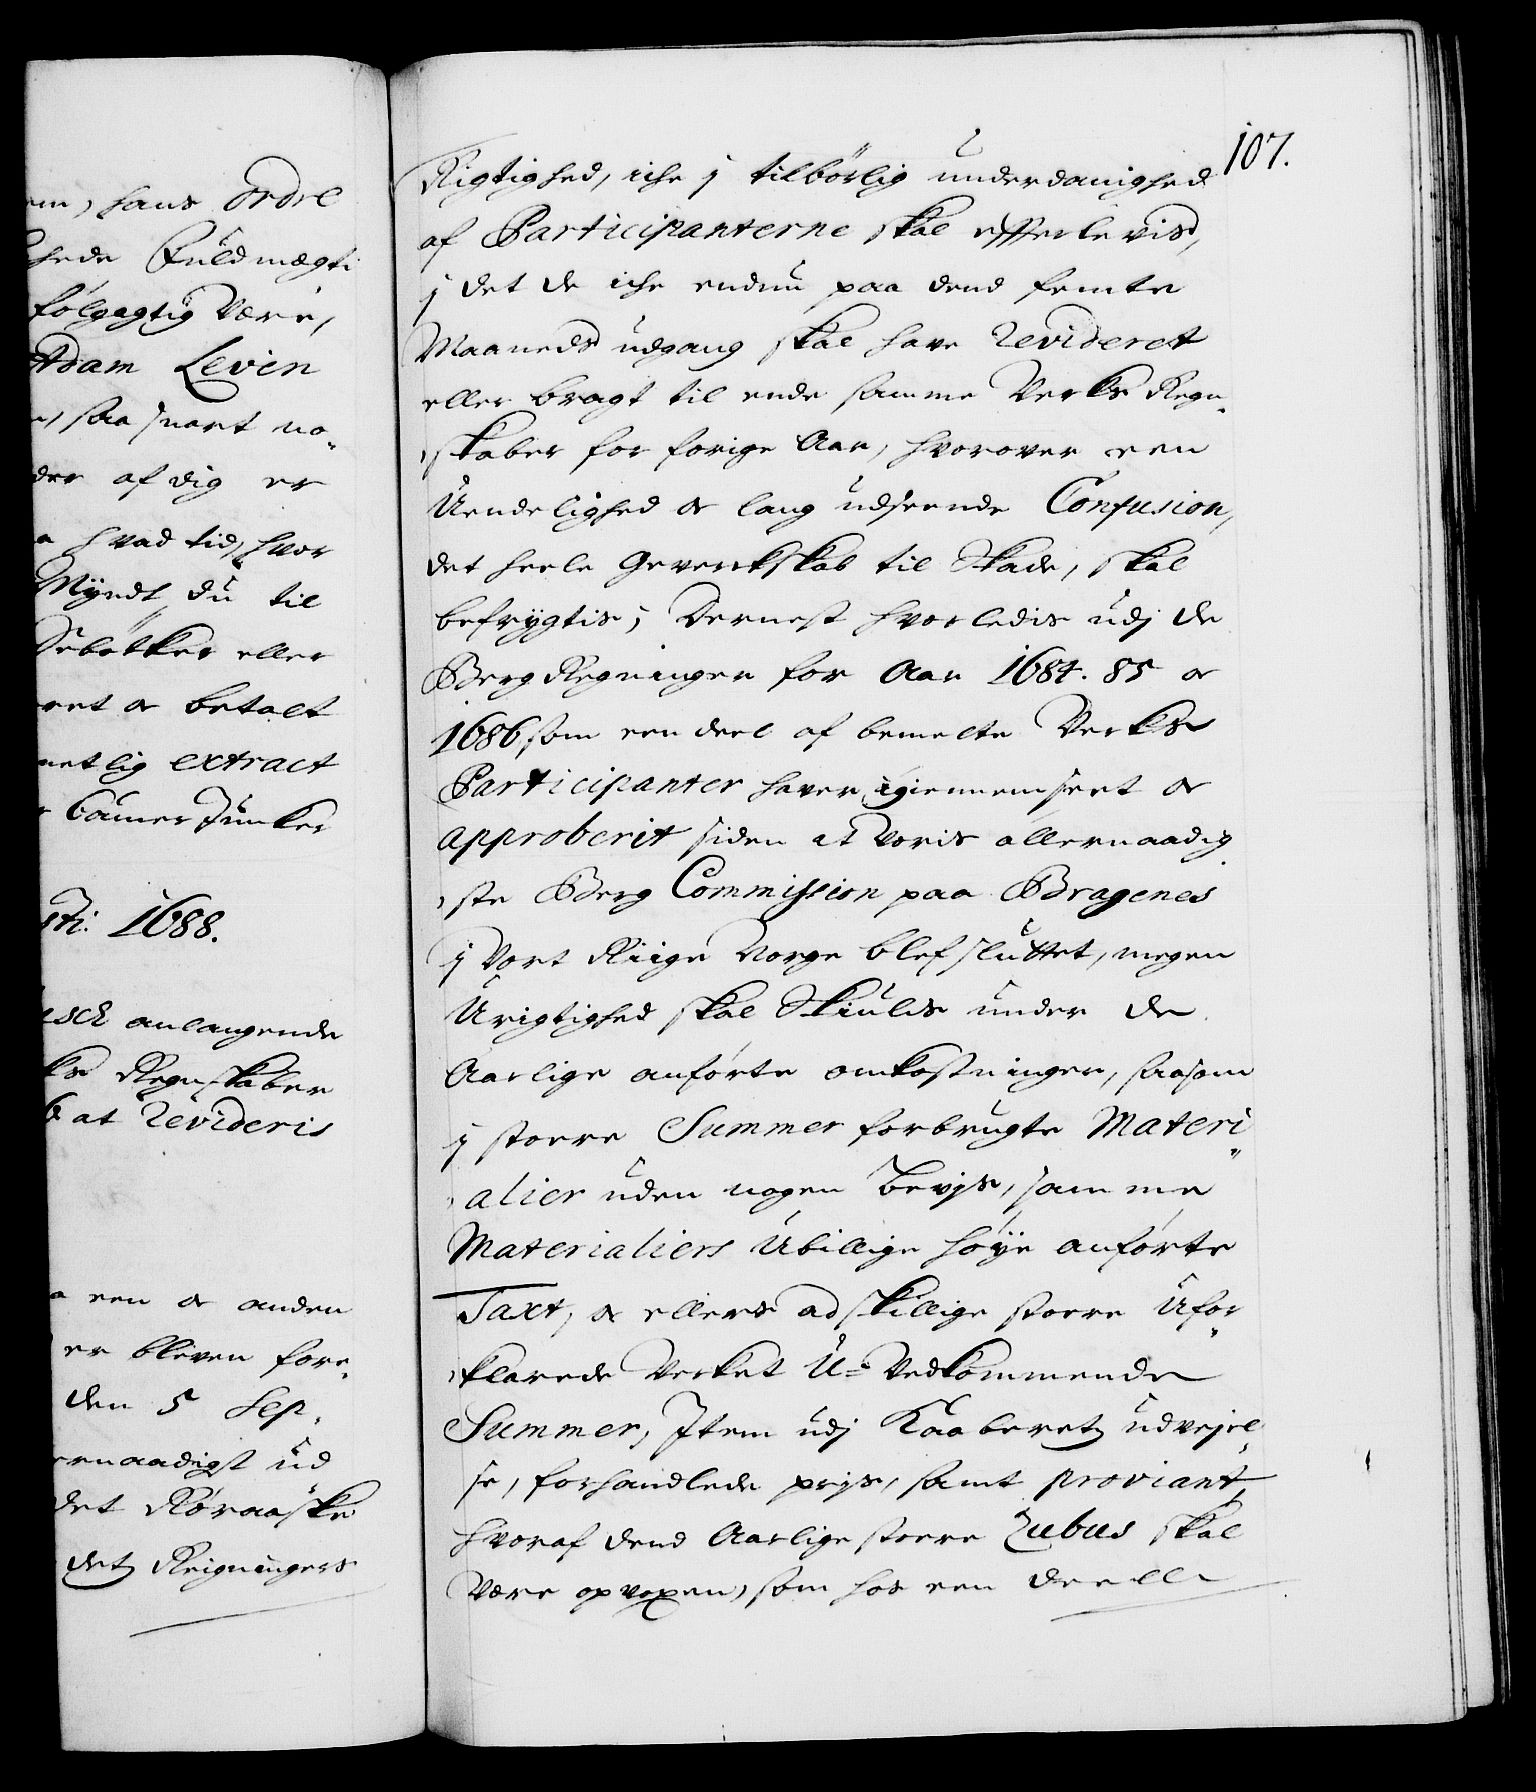 em, hans Ordre
hede Fuldmægti
følgagtig være,
Adam Levin
saa snart no„
der af dig er
a hvad tid, hvor
Myndt du til
Sebøtker eller
ret og betalt
netlig extract
r Camer Juncker
sti: 1688.
usch anlangende
ks Regnskaber
b at Revideris
a een og anden
er bleven fore„
den 5 Sep„
ernaadigst ud
det Røraaske
detz Reigningers
107.
Rigtighed, iche j tilbørlig underdanighed
af Participanterne skal efferlevis,
j det de iche endnu paa dend femte
Maaneds udgang skal have Revideret
eller bragt til ende samme Verks Regn„
„skaber for forige Aar, hvorover een
Uendelighed og lang udseende Confusion,
det heele Geverkskab til Skade, skal
befrygtis; Dernest hvorledis udj de
Berg Regninger for Aar 1684. 85 og
1686, som een deel af bemelte Verks
Participanter haver igiennemseet og
approberit siden at Voris allernaadig„
„ste Berg Commission paa Bragenes
j Vort Riige Norge blef sluttet, megen
Urigtighed skal Skiulds under de
Aarlige anførte omkostninger, saasom
j stoere Summer forbrugte Materi„
„alier uden nogen Beviis, samme
Materialiers Ubillige høye anførte
Taxt, og ellers adskillige stoere Ufor„
„klarede Verket U-Vedkommende
Summer, Item udj Kaaberetz udvejel„
se, forhandlede priis, samt proviant,
hvoraf dend Aarlige stoere Zubus skal
være opvoxen, som hos een deell